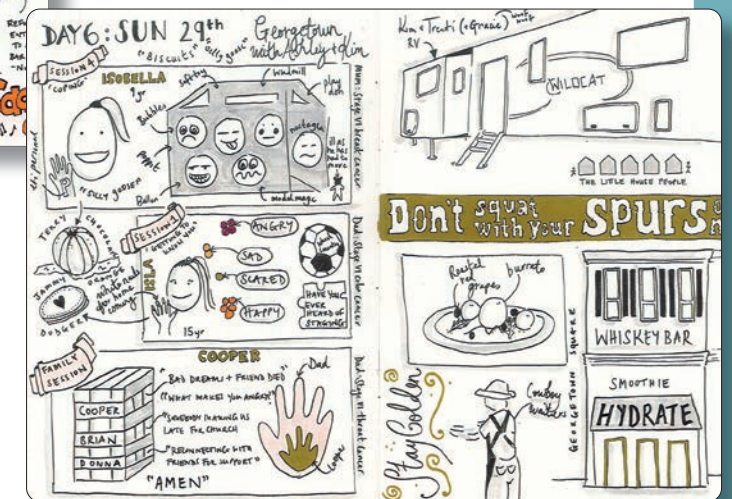 DAY 6: SUN 29th
Georgetown
with Ashley + Kim
"BISCUITS"
"Silly goose"
SESSION 4
"COPING"
ISOBELLA
9yr
soft toy
windmill
play
doh
Bubbles
puppet
Balloon
model magic
nostalgia
"SILLY GOOSE"
Mum: Stage VI breast cancer
TERRY'S CHOCOLATE
ORANGE
JAMMY
DODGER
SESSION 1
"GETTING TO
KNOW YOU"
ISLA
15yr
ANGRY
SAD
SCARED
HAPPY
HAVE YOU
EVER
HEARD OF
STAGING
Dad: Stage VI colon cancer
FAMILY
SESSION
COOPER
COOPER
BRIAN
DONNA
"BAD DREAMS + FRIEND DIED"
"WHAT MAKES YOU ANGRY?"
"SOMEBODY MAKING US
LATE FOR CHURCH
"RECONNECTING WITH
FRIENDS FOR SUPPORT"
"AMEN"
Dad
Cooper
Dad: Stage VI throat cancer
Kim + Trenti (+ Gracie)
RV
WILDCAT
THE LITTLE HOUSE PEOPLE
Don't squat
with your SPURS
Roasted
red
grapes
burrata
Stay Golden
Cowboy
waiters
GEORGETOWN SQUARE
WHISKEY BAR
SMOOTHIE
HYDRATE